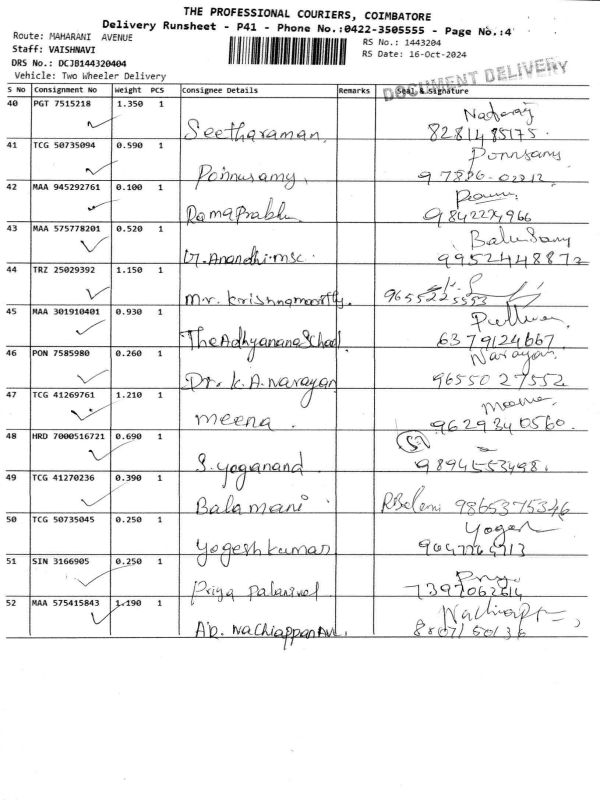 THE PROFESSIONAL COURIERS, COIMBATORE
Delivery Runsheet - P41 - Phone No.:0422-3505555 - Page No.:4
Route: MAHARANI AVENUE
RS No.: 1443204
Staff: VAISHNAVI
RS Date: 16-Oct-2024
DRS No.: DCJB144320404
DOCUMENT DELIVERY
Vehicle: Two Wheeler Delivery
S No Consignment No Weight PCS Consignee Details Remarks Seal & signature
40 PGT 7515218 1.350 1
Seetharaman 8281485175.
41 TCG 50735094 0.590 1 Ponnsamy
Ponnusamy,
42 MAA 945292761 0.100 1
Rama Prabhu 9842224966
43 MAA 575778201 0.520 1
Anandhi.msc 9952448872
44 TRZ 25029392 1.150 1
m.r. krishnamoorthy. 9655225553
45 MAA 301910401 0.930 1
The Adhyanana School. 6379124667
46 PON 7585980 0.260 1 Narayan
Dr. K.A. Narayan 9655027552
47 TCG 41269761 1.210 1 meena
meena. 9629340560.
48 HRD 7000516721 0.690 1
S. yoganand 9894553498.
49 TCG 41270236 0.390 1
Balamani 9865375346
50 TCG 50735045 0.250 1 Yogesh
yogesh kumar
51 SIN 3166905 0.250 1 Priya
Priya Palanivel 7397062614
52 MAA 575415843 1.190 1
8807150136